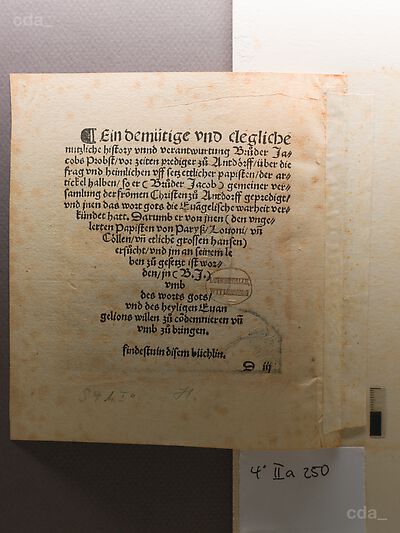 cda_
¶ Ein demütige vnd clegliche
nutzliche history vnnd verantwurtung Brůder Ja-
cobs Probst/ vor zeiten prediger zů Antdörff/ über die
frag vnd heimlichen vff setz ettlicher papisten/ der ar-
tickel halben/ so er (Brůder Jacob) gemeiner ver-
samlung der frömen Christen zů Antdorff gepredigt/
vnd jnen das wort gots die Euãgelische warheit ver-
kündet hatt. Darumb er von jnen (den vnge-
lerten Papisten von Paryß/ Louoni/ vñ
Cöllen/ vñ etliche grossen hansen)
ersücht/ vnd jm an seinem le
ben zů gesetzt ist wor-
den/ jn (B. J.)
vmb
des worts gots/
vnd des heyligen Euan
gelions willen zů cõdemnieren vñ
vmb zů bringen.
findestu in disem büchlin.
LUTHERHALLE
WITTENBERG
D iij
4° II a 250
cda_